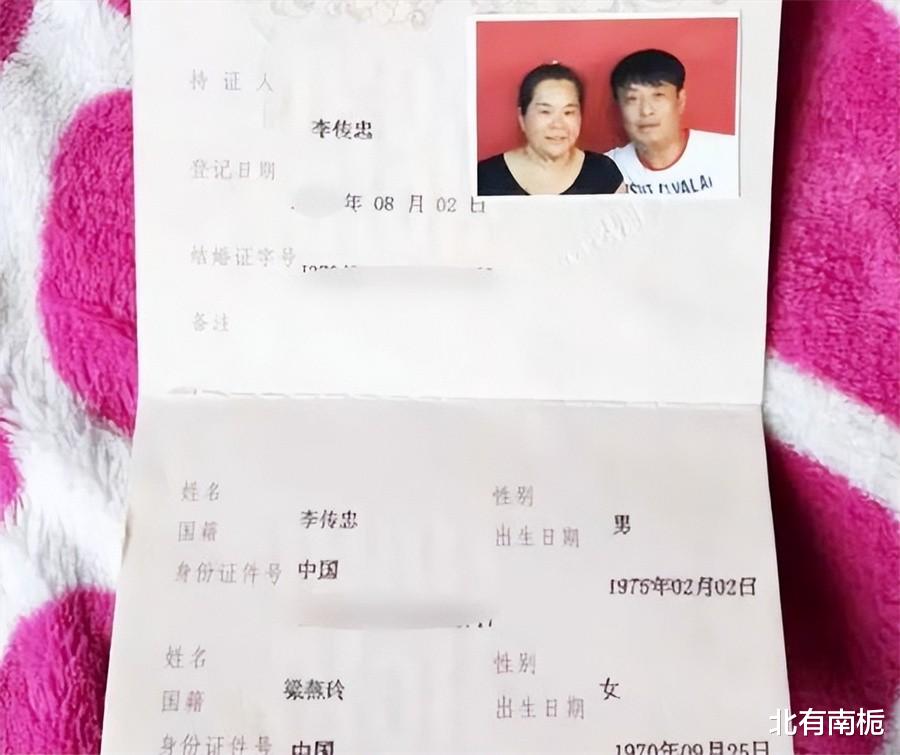 持证人
李传忠
登记日期
年 08 月 02 日
结婚证字号
备注
姓名
李传忠
性别
男
国籍
中国
出生日期
1975年02月02日
身份证件号
姓名
梁燕玲
性别
女
国籍
中国
出生日期
1970年09月25日
身份证件号
北有南栀